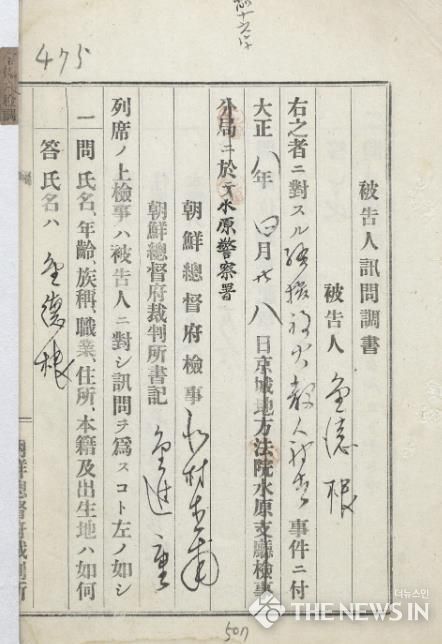 475
被告人訊問調書
被告人 金德根
右之者ニ對スル騷擾放火殺人 事件ニ付
大正八年四月廿八日京城地方法院水原支廳檢事
分局ニ於テ水原警察署
朝鮮總督府檢事
朝鮮總督府裁判所書記
列席ノ上檢事ハ被告人ニ對シ訊問ヲ爲スコト左ノ如シ
一 問 氏名、年齡、族稱、職業、住所、本籍及出生地ハ如何
答 氏名ハ 金德根
朝鮮總督府裁判所
507
더뉴스인
THE NEWS IN